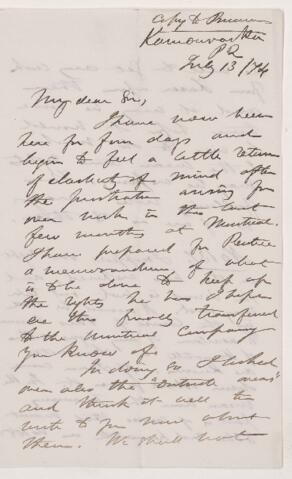 Copy to
Kamouraska
P.Q
July 13 /74
My dear Sir,
I have now been
here for four days and
begin to feel a little return
of elasticity of mind after
the prostration arising from
over work in the last
few months at Montreal.
I have prepared for
a memorandum of what
is to be done to keep up
the rights he has I hope
ere this transferred
to the Company
you know of.
In doing so I looked
over also the "outside areas"
and think it well to
write to you now about
them. We shall not